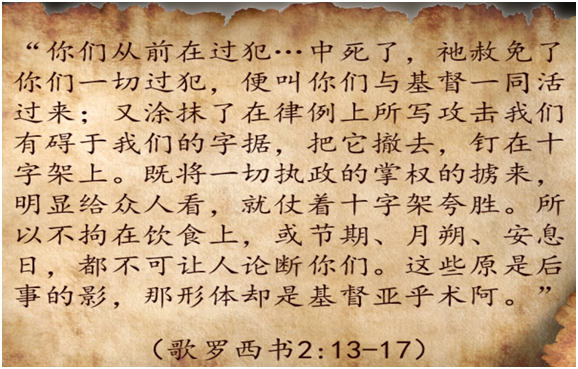 “你们从前在过犯…中死了，祂赦免了
你们一切过犯，便叫你们与基督一同活
过来；又涂抹了在律例上所写攻击我们
有碍于我们的字据，把它撤去，钉在十
字架上。既将一切执政的掌权的掳来，
明显给众人看，就仗着十字架夸胜。所
以不拘在饮食上，或节期、月朔、安息
日，都不可让人论断你们。这些原是后
事的影，那形体却是基督亚乎术阿。”
（歌罗西书2:13-17）